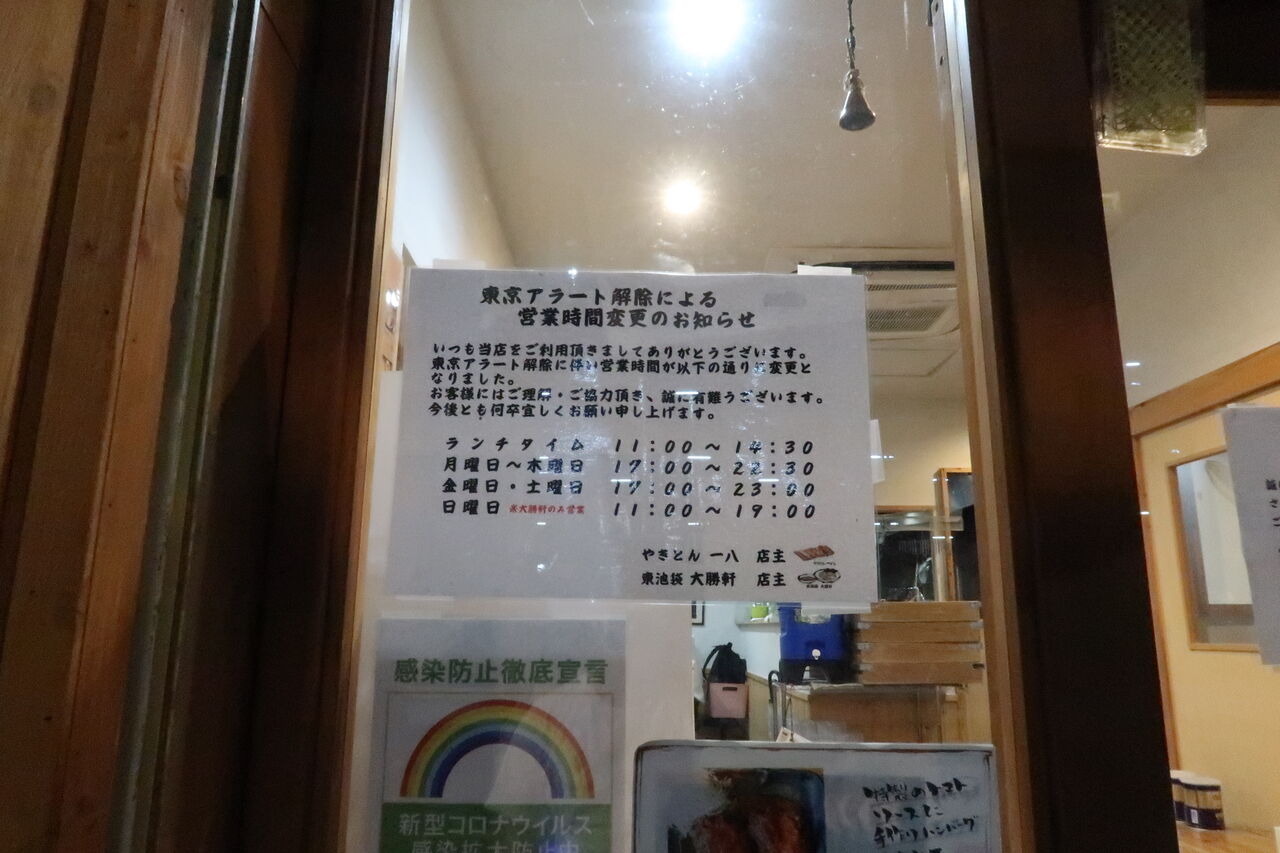 東京アラート解除による
営業時間変更のお知らせ
いつも当店をご利用頂きましてありがとうございます。
東京アラート解除に伴い営業時間が以下の通りに変更と
なりました。
お客様にはご理解・ご協力頂き、誠に有難うございます。
今後とも何卒宜しくお願い申し上げます。
ランチタイム 11:00～14:30
月曜日～木曜日 17:00～22:30
金曜日・土曜日 17:00～23:00
日曜日 ※大勝軒のみ営業 11:00～19:00
やきとん 一八 店主
東池袋 大勝軒 店主
感染防止徹底宣言
新型コロナウイルス
感染拡大防止中
特製のトマト
ソースと
手作りハンバーグ